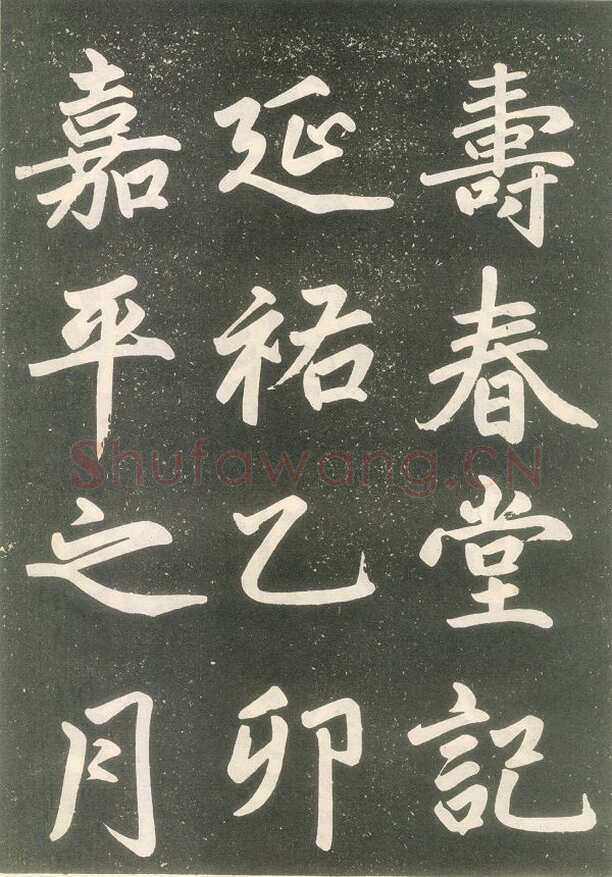 壽春堂記
延祐乙卯
嘉平之月
Shufawang.CN